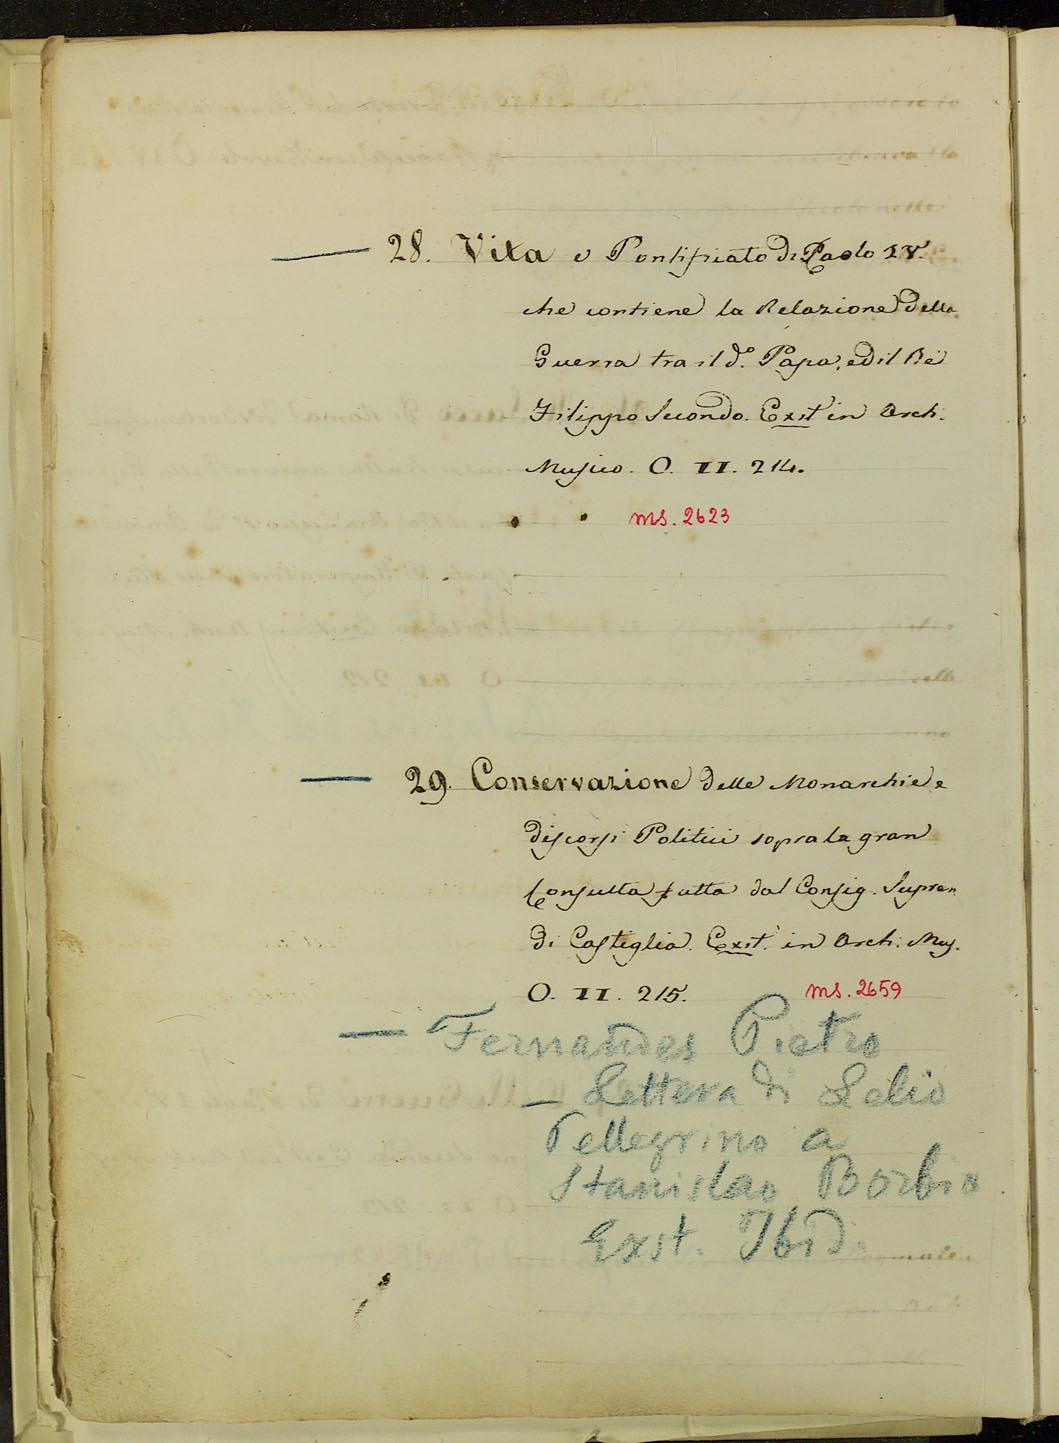 — 28. Vita e Pontificato di Paolo IV.
che contiene la Relazione della
Guerra tra il d.º Papa, ed il Rè
Filippo Secondo. Exst in Arch.
Musico. O. II. 214.
ms. 2623
— 29. Conservazione delle Monarchie e
discorsi Politici sopra la gran
Consulta fatta dal Consig. Suprem.
di Castiglia. Exst. in Arch. Mus.
O. II. 215. ms. 2659
— Fernandes Pietro
— Lettera di Lelio
Pellegrino a
Stanislao Borbio
Exst. Ibid.